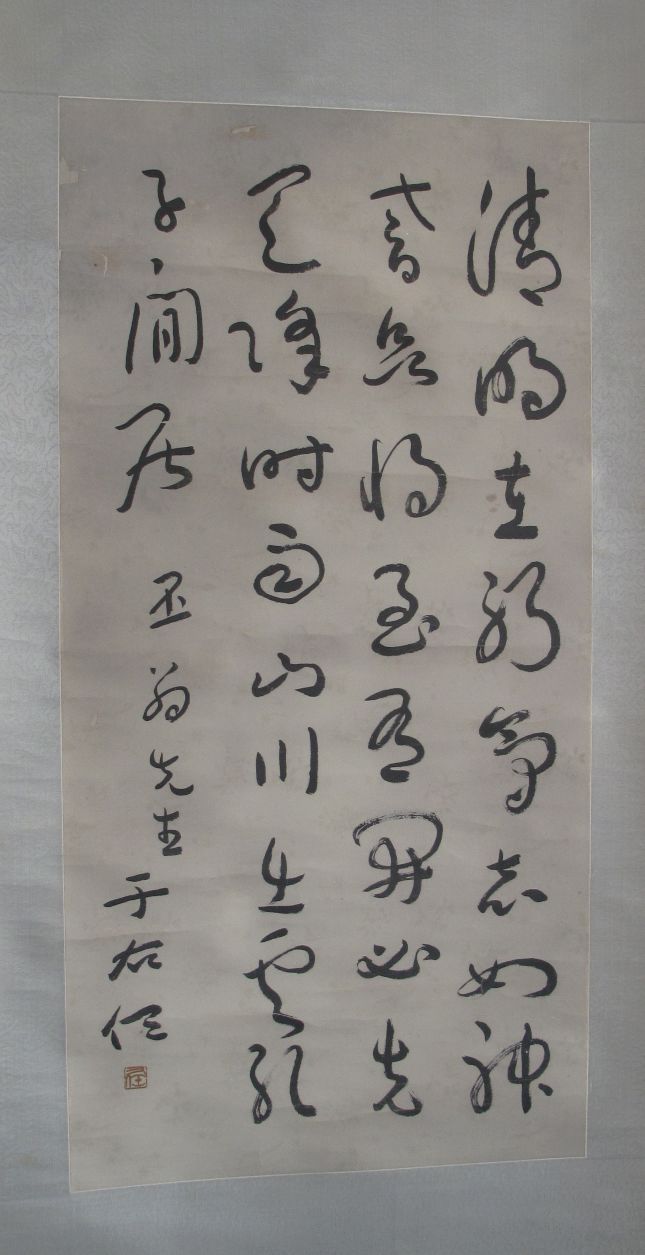 清明在躬氣志如神
耆欲將至有開必先
天降時雨山川出雲孔
子閒居 翁先生 于右任